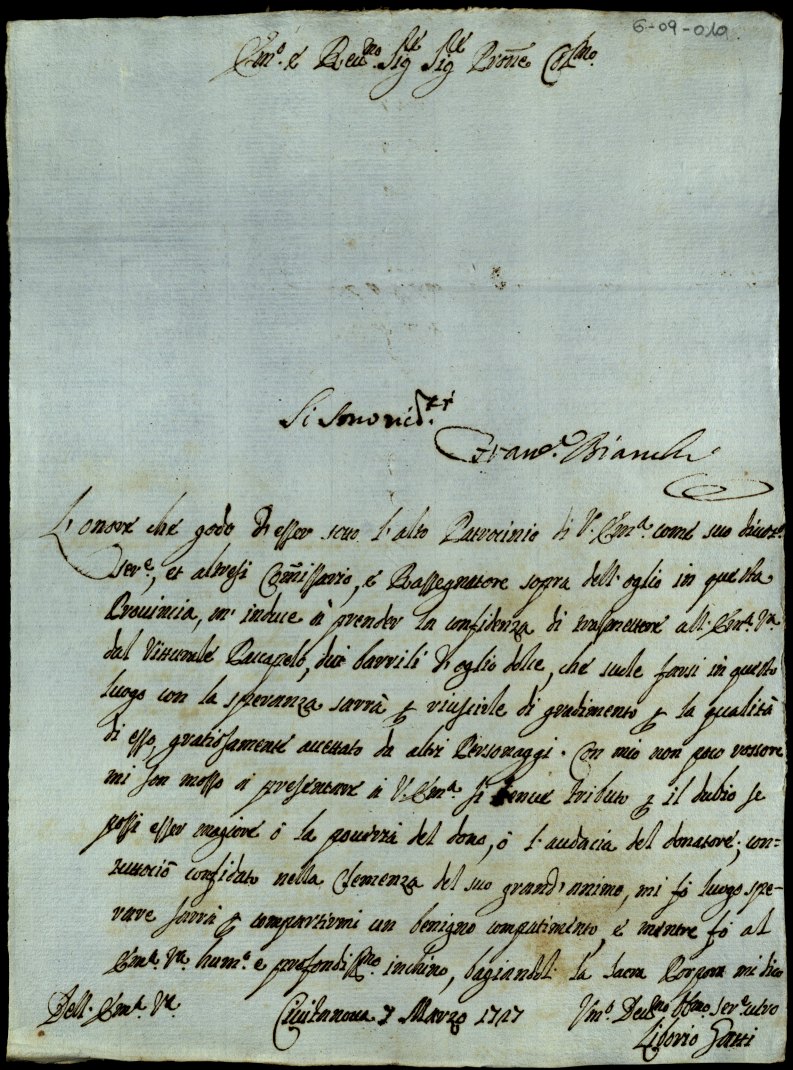 6-09-010
Em.º e Reu.mo Sig.re Sig.re Prone Col.mo
Si sono ric.ti
Fran.co Bianchi
L'onore che godo di esser sotto l'alto Patrocinio di V. Em.a come suo diuot.
ser.e, et altresi Comissario, e Rassegnatore sopra dell'oglio in questa
Prouincia, m'induce à prender la confidenza di trasmettere all'Em.a V.a
dal Vitturale Paccapelo, due barrili di oglio dolce, che suole farsi in questo
luogo con la speranza sarrà p riuscirle di gradimento p la qualità
di esso, gratiosamente accettato da altri Personaggi. Con mio non poco rossore
mi son mosso à presentare à V. Em.a si tenue tributo p il dubio se
possi esser magiore ò la pouertà del dono, ò l'audacia del donatore; con=
tuttociò confidato nella Clemenza del suo grand'animo, mi fò luogo spe-
rare sarrà p compartirmi un benigno compatimento, e mentre fò al
Em.a V.a hum.e e profondiss.mo inchino, bagiandol. la Sacra Porpora mi dico
Dell'Em.a V.a Ciuitanoua 7 Marzo 1727 Um.º Deu.mo Obl.mo ser.e vero
Liborio Gatti